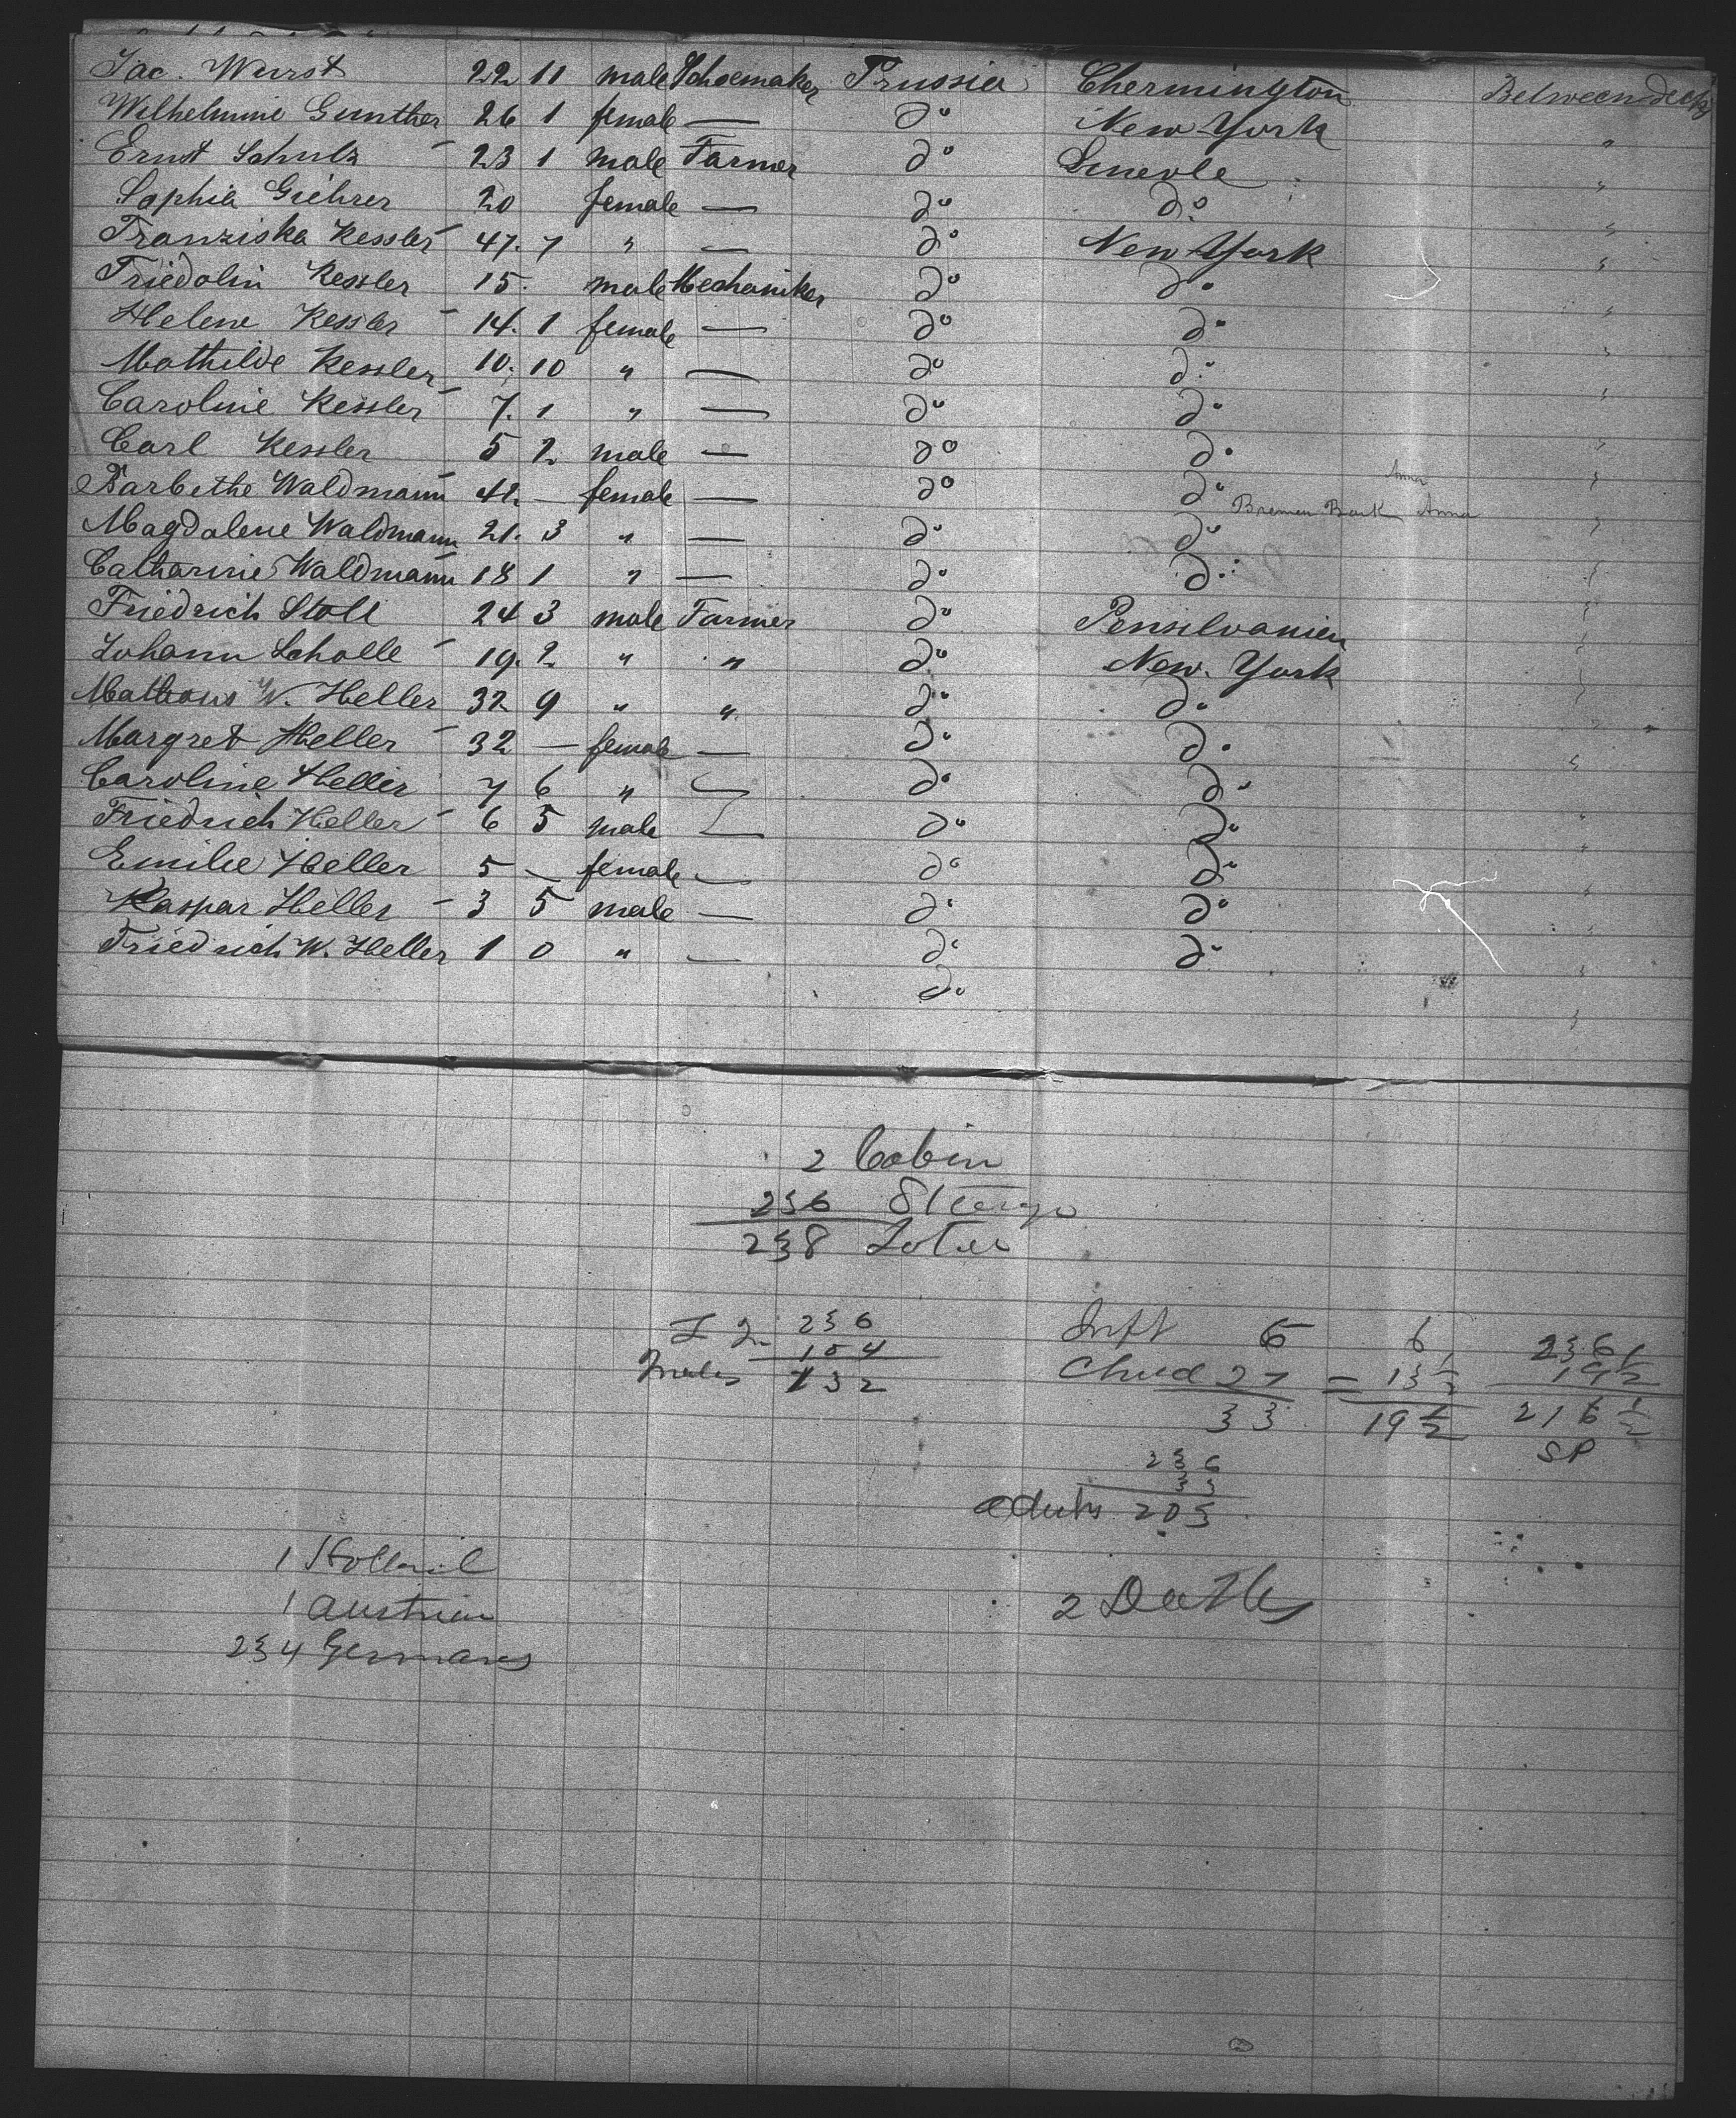 Jac. Wurst 22 11 male Schoemaker Prussia Chermington Betweendecks
Wilhelmine Gunther 26 1 female — do New York "
Ernst Schulz 23 1 male Farmer do "
Sophia Giehrer 20 female — do do "
Franziska Kessler 47. 7 " — do New York "
Friedolin Kessler 15. male Mechaniker do do "
Helene Kessler 14. 1 female — do do "
Mathilde Kessler 10. 10 " — do do "
Caroline Kessler 7. 1 " — do do "
Carl Kessler 5 2 male — do do "
Anna
Barbethe Waldmann 42 — female — do do "
Bremen Bark Anna
Magdalene Waldmann 21. 3 " — do do "
Catharine Waldmann 18 1 " — do do "
Friedrich Stoll 24 3 male Farmer do Pensilvanien "
Johann Scholle 19. 2 " " do New. York "
Mathaus W. Heller 32 9 " " do do "
Margret Heller 32 — female — do do "
Caroline Heller 7 6 " — do do "
Friedrich Heller 6 5 male — do do "
Emilie Heller 5 — female — do do "
Kaspar Heller 3 5 male — do do "
Friedrich W. Heller 1 0 " — do do "
do "
2 Cabin
236 Steerage
238 Total
236
104
Males 132
Inft 6 6
Chied 27 = 13 1/2
33 19 1/2
236
19 1/2
216 1/2
SP
236
33
Adults 203
1 Holland
1 Austrian
234 Germans
2 Deaths